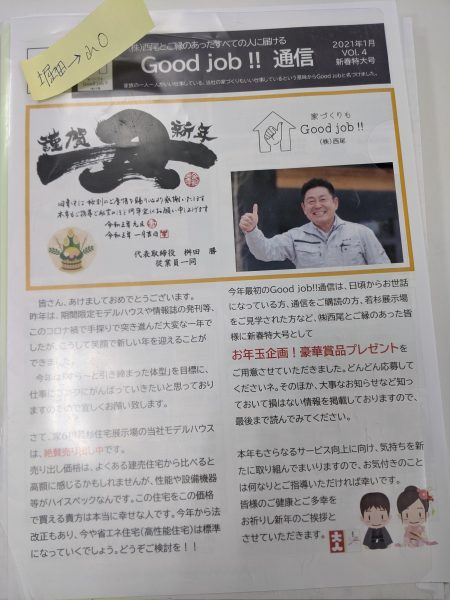 (株)西尾とご縁のあったすべての人に届ける
Good job !! 通信
2021年1月
VOL. 4
新春特大号
謹賀
新年
丑
代表取締役 桝田 勝
従業員一同
家づくりも
Good job !!
(株)西尾
皆さん、あけましておめでとうございます。
昨年は、期間限定モデルハウスや情報誌の発刊等、
このコロナ禍で手探りで突き進んだ大変な一年で
したが、こうして笑顔で新しい年を迎えることが
できました。
今年は「すら～と引き締まった体型」を目標に、
仕事に
がんばっていきたいと思っており
ますので宜しくお願い致します。
さて、
住宅展示場の当社モデルハウス
は、絶賛売り出し中です。
売り出し価格は、よくある建売住宅から比べると
高額に感じるかもしれませんが、性能や設備機器
等がハイスペックなんです。この住宅をこの価格
で買える貴方は本当に幸せな人です。今年から法
改正もあり、今や省エネ住宅(高性能住宅)は標準
になっていくでしょう。どうぞご検討を！！
今年最初のGood job!!通信は、日頃からお世話
になっている方、通信をご購読の方、若杉展示場
をご見学された方など、㈱西尾とご縁のあった皆
様に新春特大号として
お年玉企画！豪華賞品プレゼントを
ご用意させていただきました。どんどん応募して
くださいネ。そのほか、大事なお知らせなど知っ
ておいて損はない情報を掲載しておりますので、
最後まで読んでみてください。
本年もさらなるサービス向上に向け、気持ちを新
たに取り組んでまいりますので、お気付きのこと
は何なりとご指導いただければ幸いです。
皆様のご健康とご多幸を
お祈りし新年のご挨拶と
させていただきます。